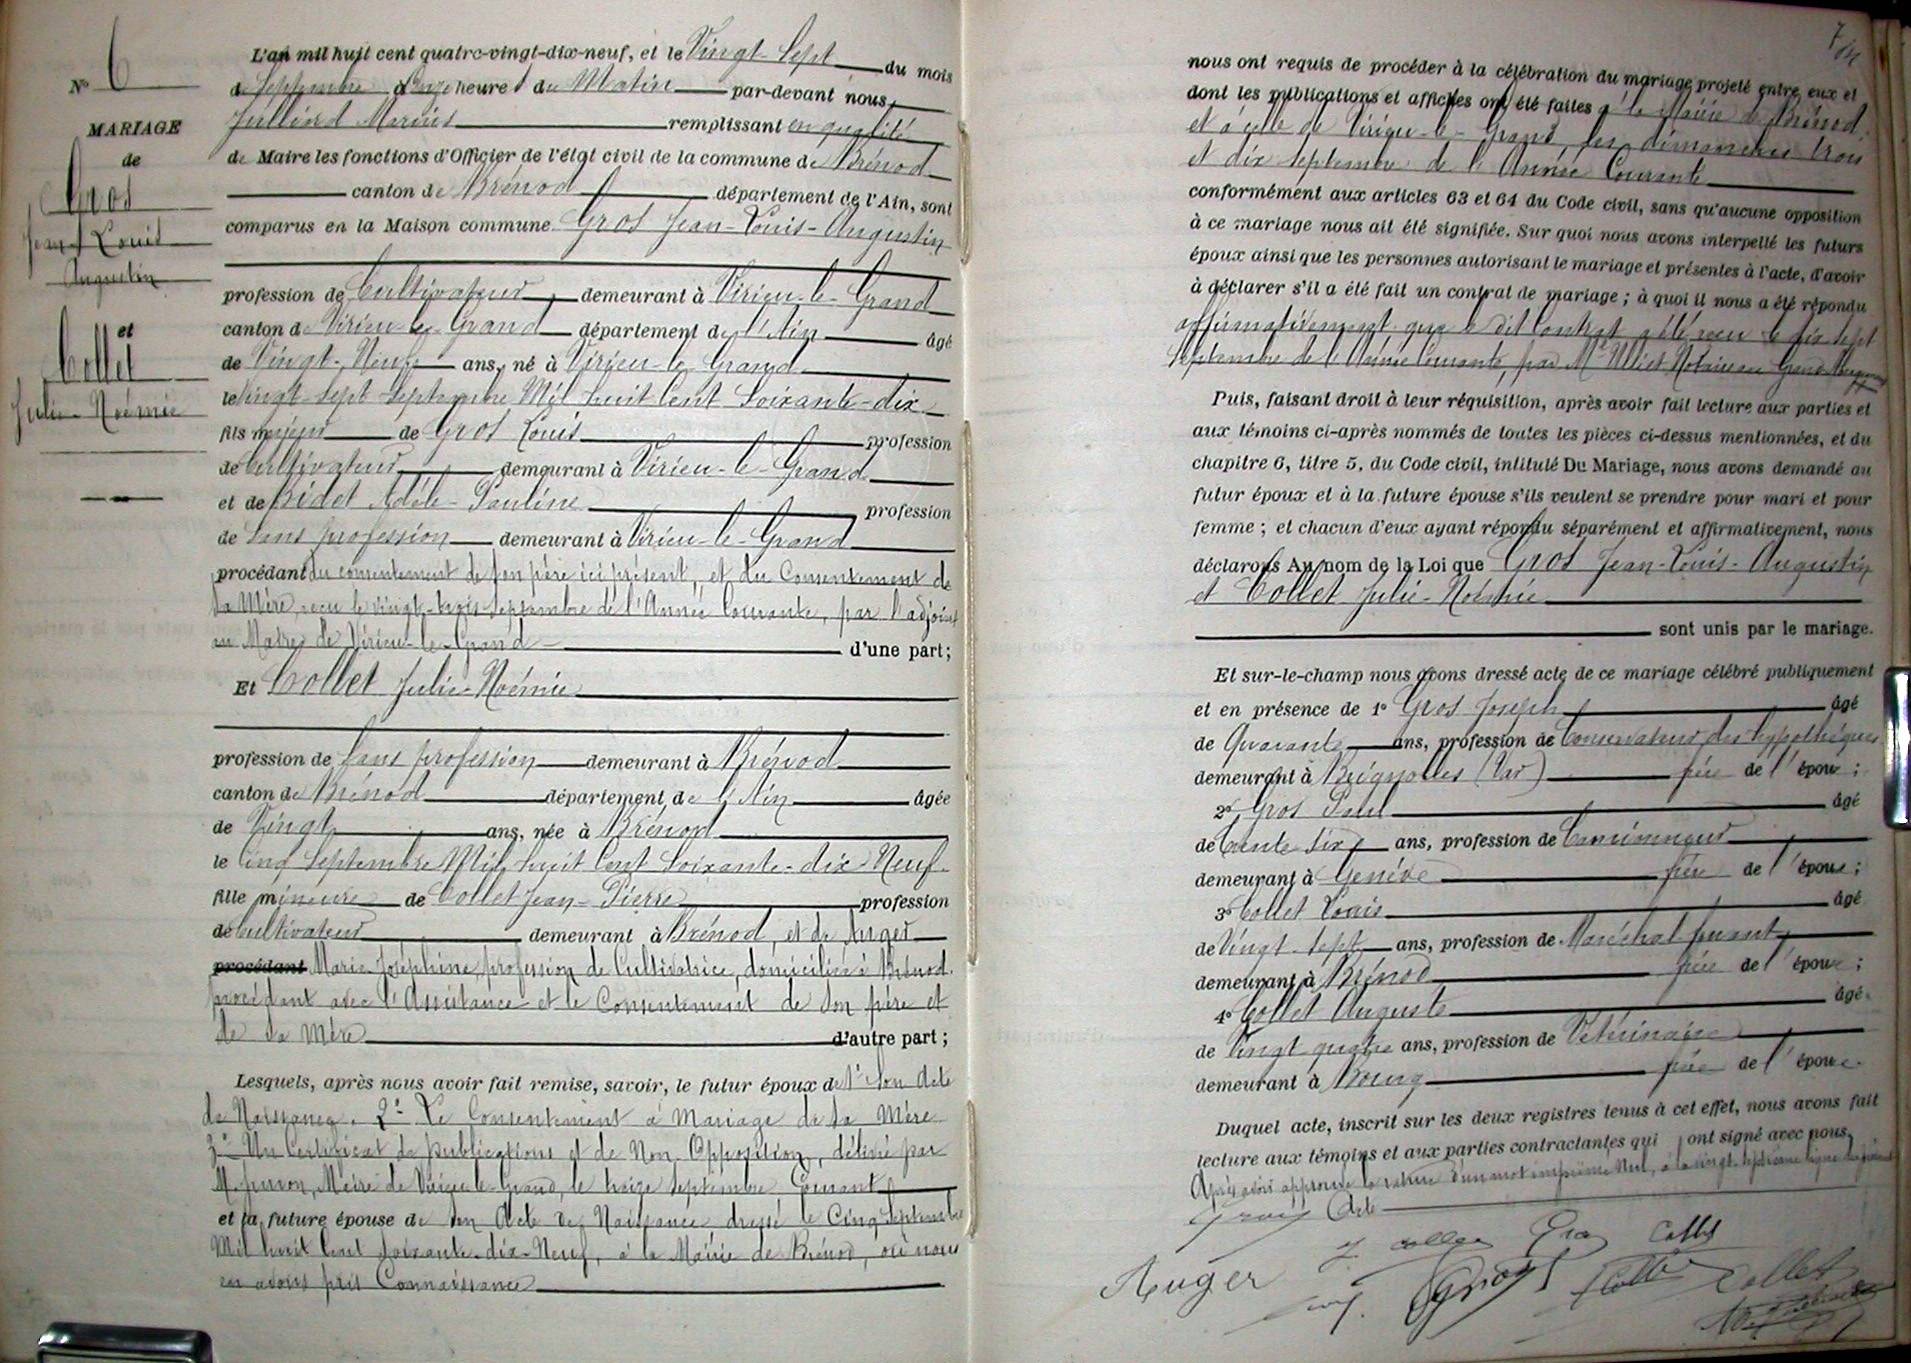 N° 6
MARIAGE
de
Gros
Jean Louis
Augustin
et
Collet
Julie Noémie
L'an mil huit cent quatre-vingt-dix-neuf, et le Vingt Sept du mois
de Septembre à Onze heures du Matin par-devant nous,
Julliard Marius remplissant en qualité
de Maire les fonctions d'Officier de l'état civil de la commune de Brénod
canton de Brénod département de l'Ain, sont
comparus en la Maison commune Gros Jean-Louis-Augustin
profession de Cultivateur demeurant à Virieu-le-Grand
canton de Virieu-le-Grand département de l'Ain âgé
de Vingt-Neuf ans, né à Virieu-le-Grand
le Vingt Sept Septembre Mil huit Cent Soixante-dix
fils majeur de Gros Louis profession
de Cultivateur demeurant à Virieu-le-Grand
et de Bidet Adèle-Pauline profession
de Sans profession demeurant à Virieu-le-Grand
procédant du consentement de son père ici présent, et du Consentement de
sa Mère, reçu le vingt-trois Septembre de l'Année Courante, par l'adjoint
au Maire de Virieu-le-Grand d'une part;
Et Collet Julie-Noémie
profession de Sans profession demeurant à Brénod
canton de Brénod département de l'Ain âgée
de Vingt ans, née à Brénod
le Cinq Septembre Mil huit Cent Soixante-dix-Neuf
fille mineure de Collet Jean-Pierre profession
de Cultivateur demeurant à Brénod, et de Auger
procédant Marie Joséphine, profession de Cultivatrice, domiciliée à Brénod.
procédant avec l'Assistance et le Consentement de Son père et
de Sa Mère d'autre part;
Lesquels, après nous avoir fait remise, savoir, le futur époux de 1° Son Acte
de Naissance. 2° Le Consentement à Mariage de Sa Mère
3° Un Certificat de publications et de Non Opposition, délivré par
Maire de Virieu-le-Grand, le treize Septembre Courant
et la future épouse de Son Acte de Naissance dressé le Cinq Septembre
Mil huit Cent Soixante-dix-Neuf, à la Mairie de Brénod, où nous
en avons pris Connaissance
7
nous ont requis de procéder à la célébration du mariage projeté entre eux et
dont les publications et affiches ont été faites à la Mairie de Brénod
et à celle de Virieu-le-Grand, les dimanches trois
et dix Septembre de l'Année Courante
conformément aux articles 63 et 64 du Code civil, sans qu'aucune opposition
à ce mariage nous ait été signifiée. Sur quoi nous avons interpellé les futurs
époux ainsi que les personnes autorisant le mariage et présentes à l'acte, d'avoir
à déclarer s'il a été fait un contrat de mariage; à quoi il nous a été répondu
affirmativement que le dit Contrat a été reçu le dix sept
Septembre de l'Année Courante, par Mᵉ Notaire au Grand
Puis, faisant droit à leur réquisition, après avoir fait lecture aux parties et
aux témoins ci-après nommés de toutes les pièces ci-dessus mentionnées, et du
chapitre 6, titre 5, du Code civil, intitulé Du Mariage, nous avons demandé au
futur époux et à la future épouse s'ils veulent se prendre pour mari et pour
femme; et chacun d'eux ayant répondu séparément et affirmativement, nous
déclarons Au nom de la Loi que Gros Jean-Louis-Augustin
et Collet Julie-Noémie
sont unis par le mariage.
Et sur-le-champ nous avons dressé acte de ce mariage célébré publiquement
et en présence de 1° Gros Joseph âgé
de Quarante ans, profession de Conservateur des hypothèques
demeurant à Brignolles (Var) frère de l'époux;
2° Gros Paul âgé
de trente Six ans, profession de Camionneur
demeurant à Genève frère de l'époux;
3° Collet Louis âgé
de Vingt-Sept ans, profession de Maréchal ferrant
demeurant à Brénod frère de l'épouse;
4° Collet Auguste âgé
de Vingt quatre ans, profession de Vétérinaire
demeurant à Bourg frère de l'épouse
Duquel acte, inscrit sur les deux registres tenus à cet effet, nous avons fait
lecture aux témoins et aux parties contractantes qui ont signé avec nous,
Après avoir approuvé la rature d'un mot imprimé Nul, à la vingt-septième ligne du présent
Acte
Gros J. Collet Gros Collet
Auger Gros Collet Collet